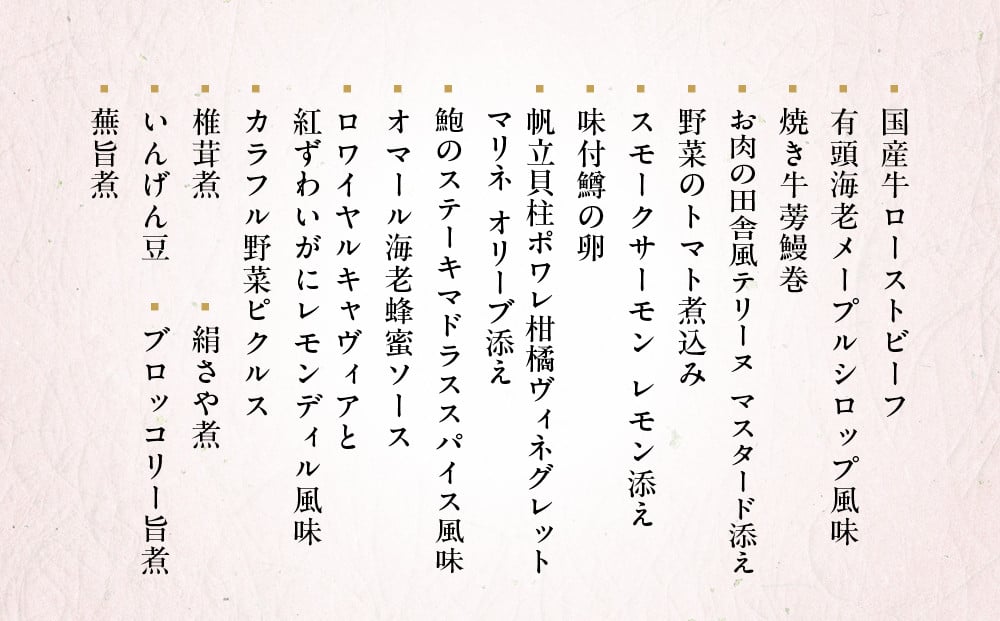 国産牛ローストビーフ
有頭海老メープルシロップ風味
焼き牛蒡鰻巻
お肉の田舎風テリーヌ マスタード添え
野菜のトマト煮込み
スモークサーモン レモン添え
味付鱒の卵
帆立貝柱ポワレ柑橘ヴィネグレット
マリネ オリーブ添え
鮑のステーキマドラススパイス風味
オマール海老蜂蜜ソース
ロワイヤルキャヴィアと
紅ずわいがにレモンディル風味
カラフル野菜ピクルス
椎茸煮
絹さや煮
いんげん豆
ブロッコリー旨煮
蕪旨煮